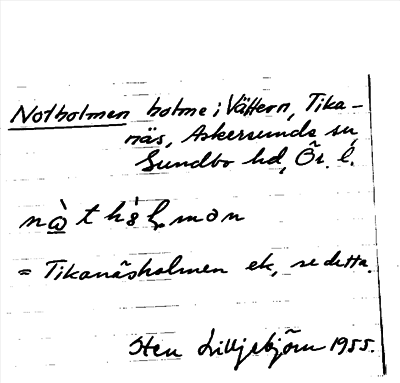 Notholmen holme i Vättern, Tika-
näs, Askersunds sn,
Sundbo hd, Ör. l.
nò̲t hòl̥mən
= Tikanäsholmen ek, se detta.
Sten Lilljebjörn 1955.